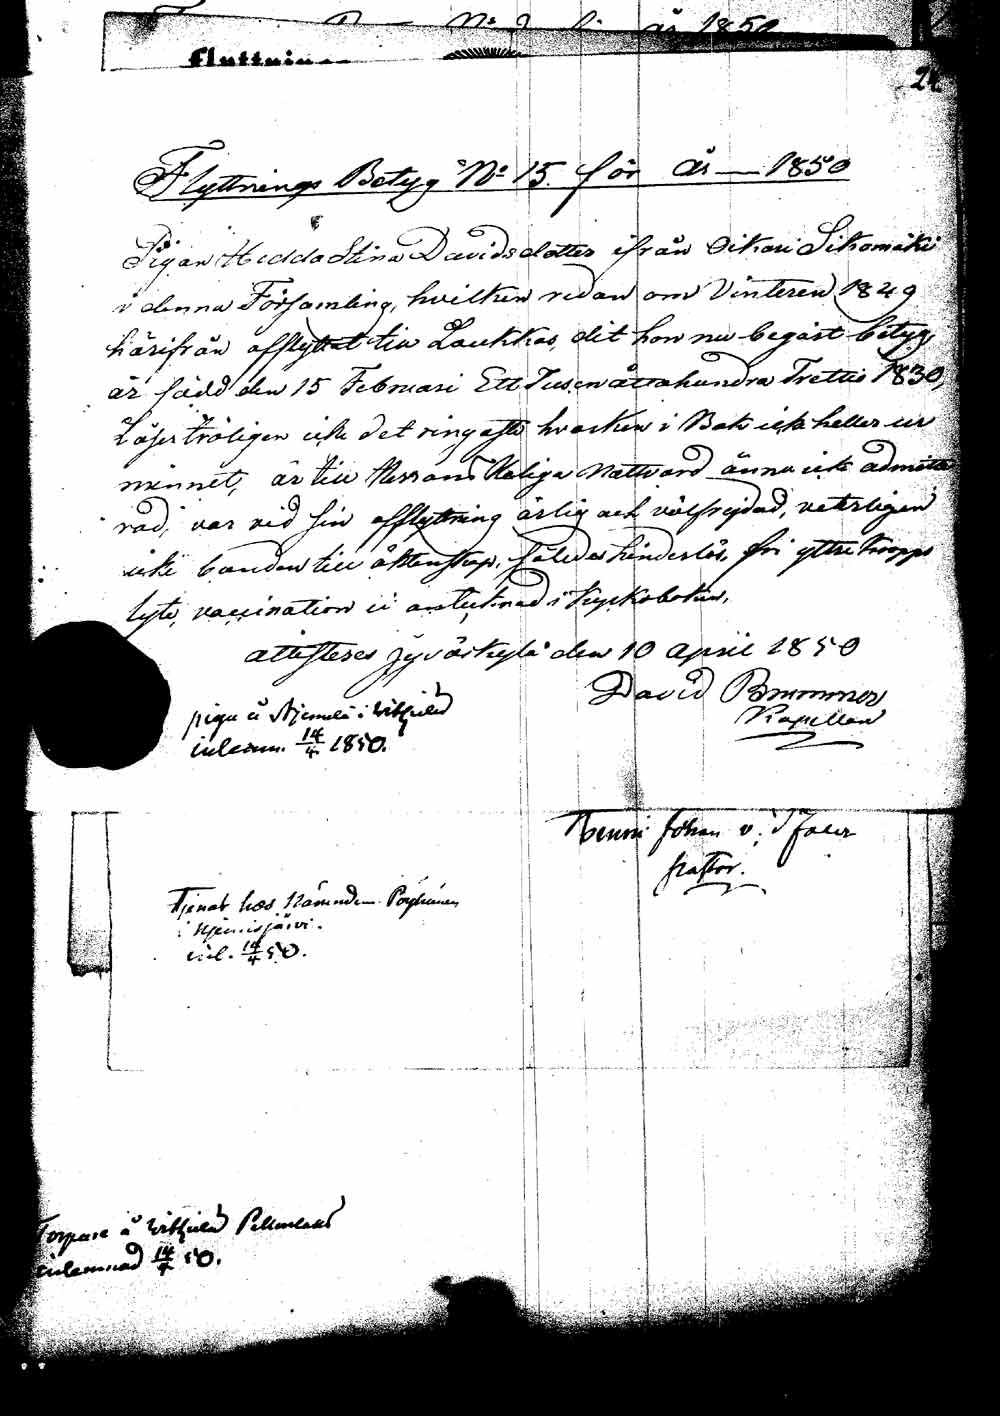 år 1850
Flyttnin
24.
Flyttnings Betyg No 15. för år — 1850
Pigan Hedda Stina Davidsdotter ifrån Oikari Sikomäki
i denna Församling, hvilken redan om Vinteren 1849
härifrån afflyttat till Laukkas, dit hon nu begärt betyg,
är född den 15 Februari Ett Tusen åttahundra Trettio 1830,
Läser troligen icke det ringaste hvarken i Bok icke heller ur
minnet, är till Herrans Heliga Nattvard ännu icke admitte
rad, var vid sin afflyttning ärlig och välfrejdad, veterligen
icke bunden till äktenskap, således hinderlös, fri yttre kropps
lyte, vaccination ei antecknad i Kyrkoboken,
attesteres Jyväskylä den 10 April 1850
David Brummer
Kapellan
piga å i
inlemn. 14/4 1850.
Johan
pastor.
Tjenat hos Nämndem. Pöyhönen
i
inl. 14/4 50.
Torpare å
inlemnad 14/4 50.